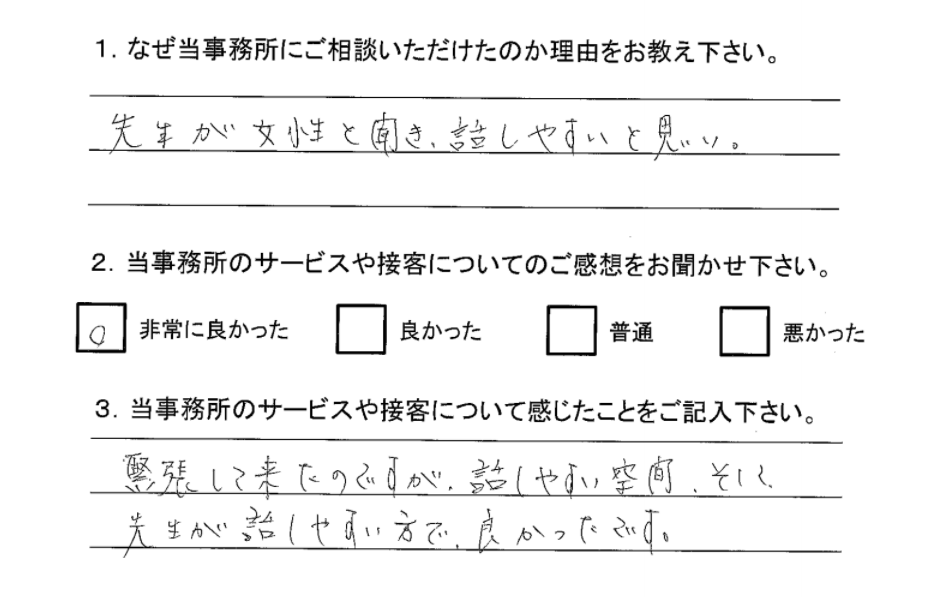 1. なぜ当事務所にご相談いただけたのか理由をお教え下さい。
先生が女性と聞き、話しやすいと思い。
2. 当事務所のサービスや接客についてのご感想をお聞かせ下さい。
○ 非常に良かった 良かった 普通 悪かった
3. 当事務所のサービスや接客について感じたことをご記入下さい。
緊張して来たのですが、話しやすい空間、そして、
先生が話しやすい方で、良かったです。